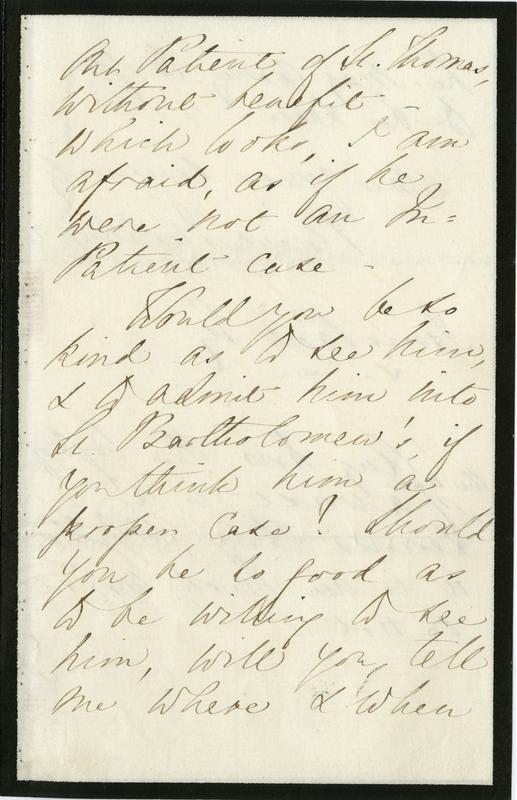 Out Patient of St. Thomas,
without benefit -
which looks, I am
afraid, as if he
were not an In=
Patient case -
Would you be so
kind as to see him,
& to admit him into
St. Bartholomew's if
you think him a
proper case? Should
you be so good as
to be willing to see
him, will you tell
me where & when